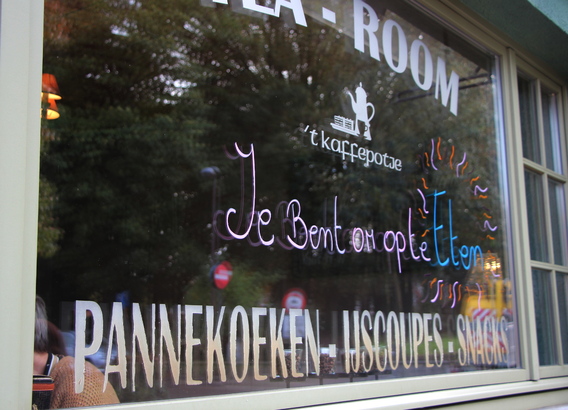 TEA - ROOM
't kaffepotje
Je Bent om opte Etten
PANNEKOEKEN - IJSCOUPES - SNACKS